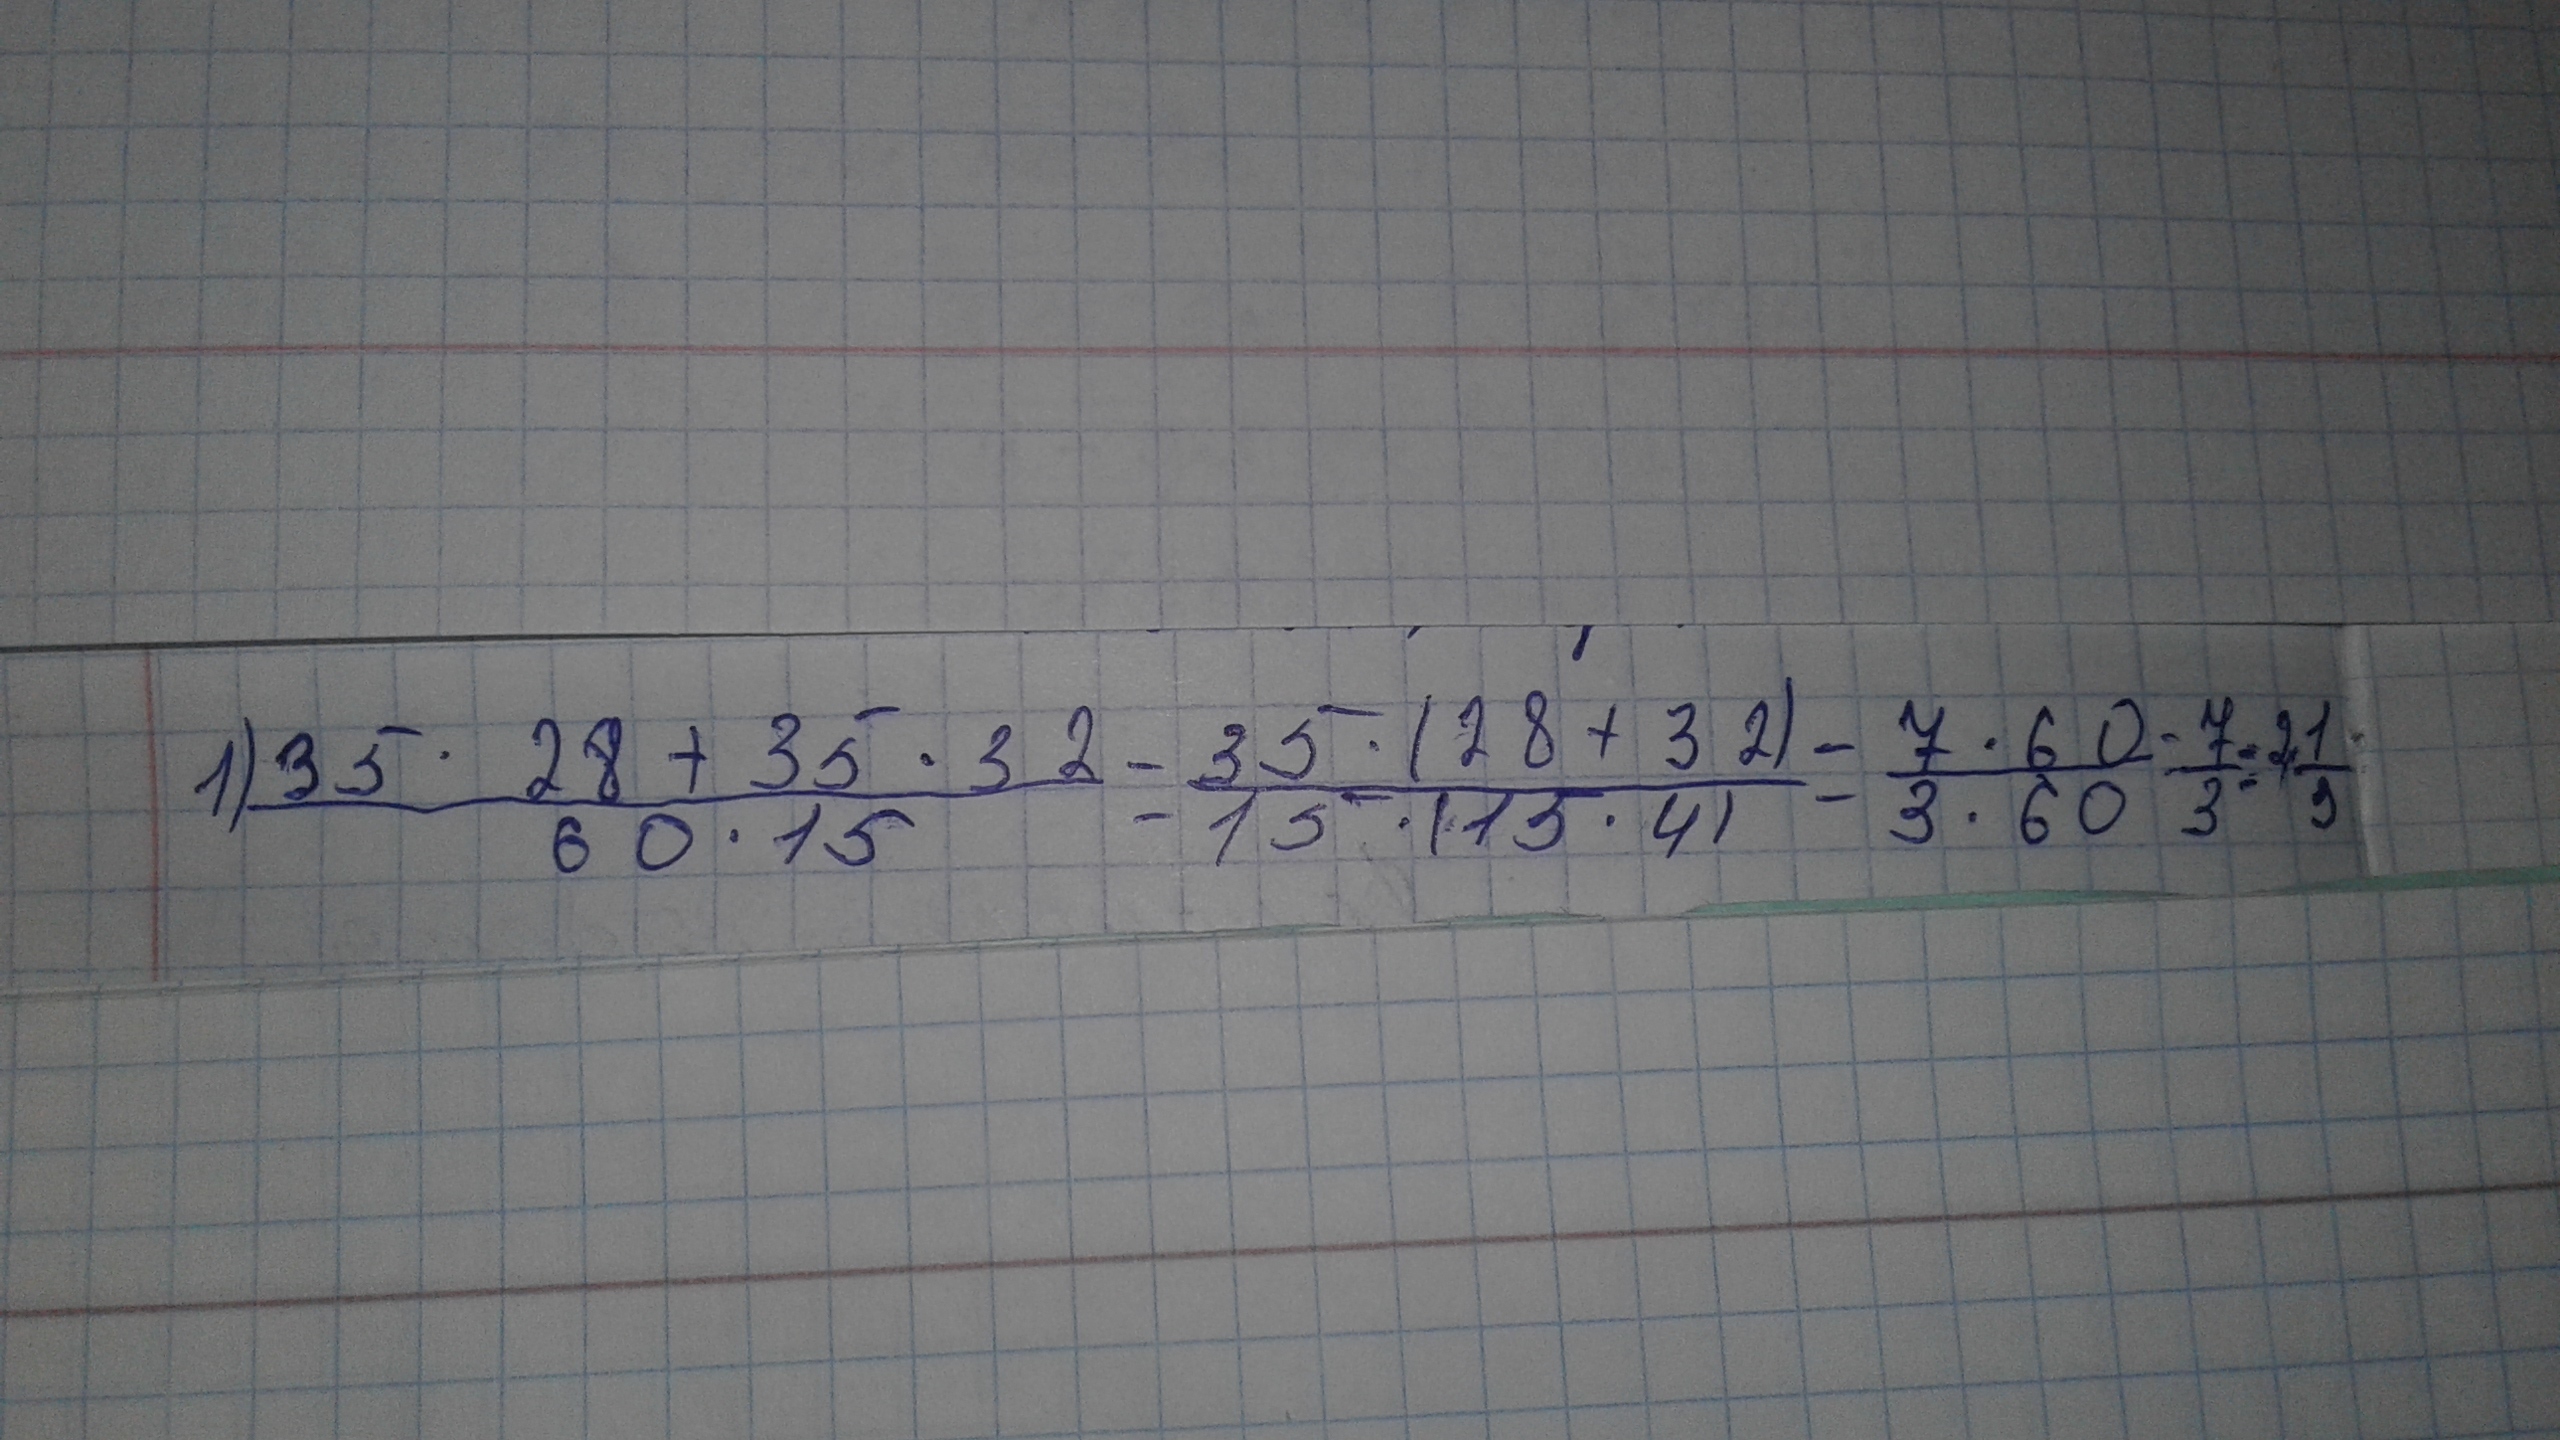 1) (35 · 28 + 35 · 32)/(60 · 15) = (35 · (28 + 32))/(15 · (15 · 4)) = (7 · 60)/(3 · 60) = 7/3 = 2 1/3.